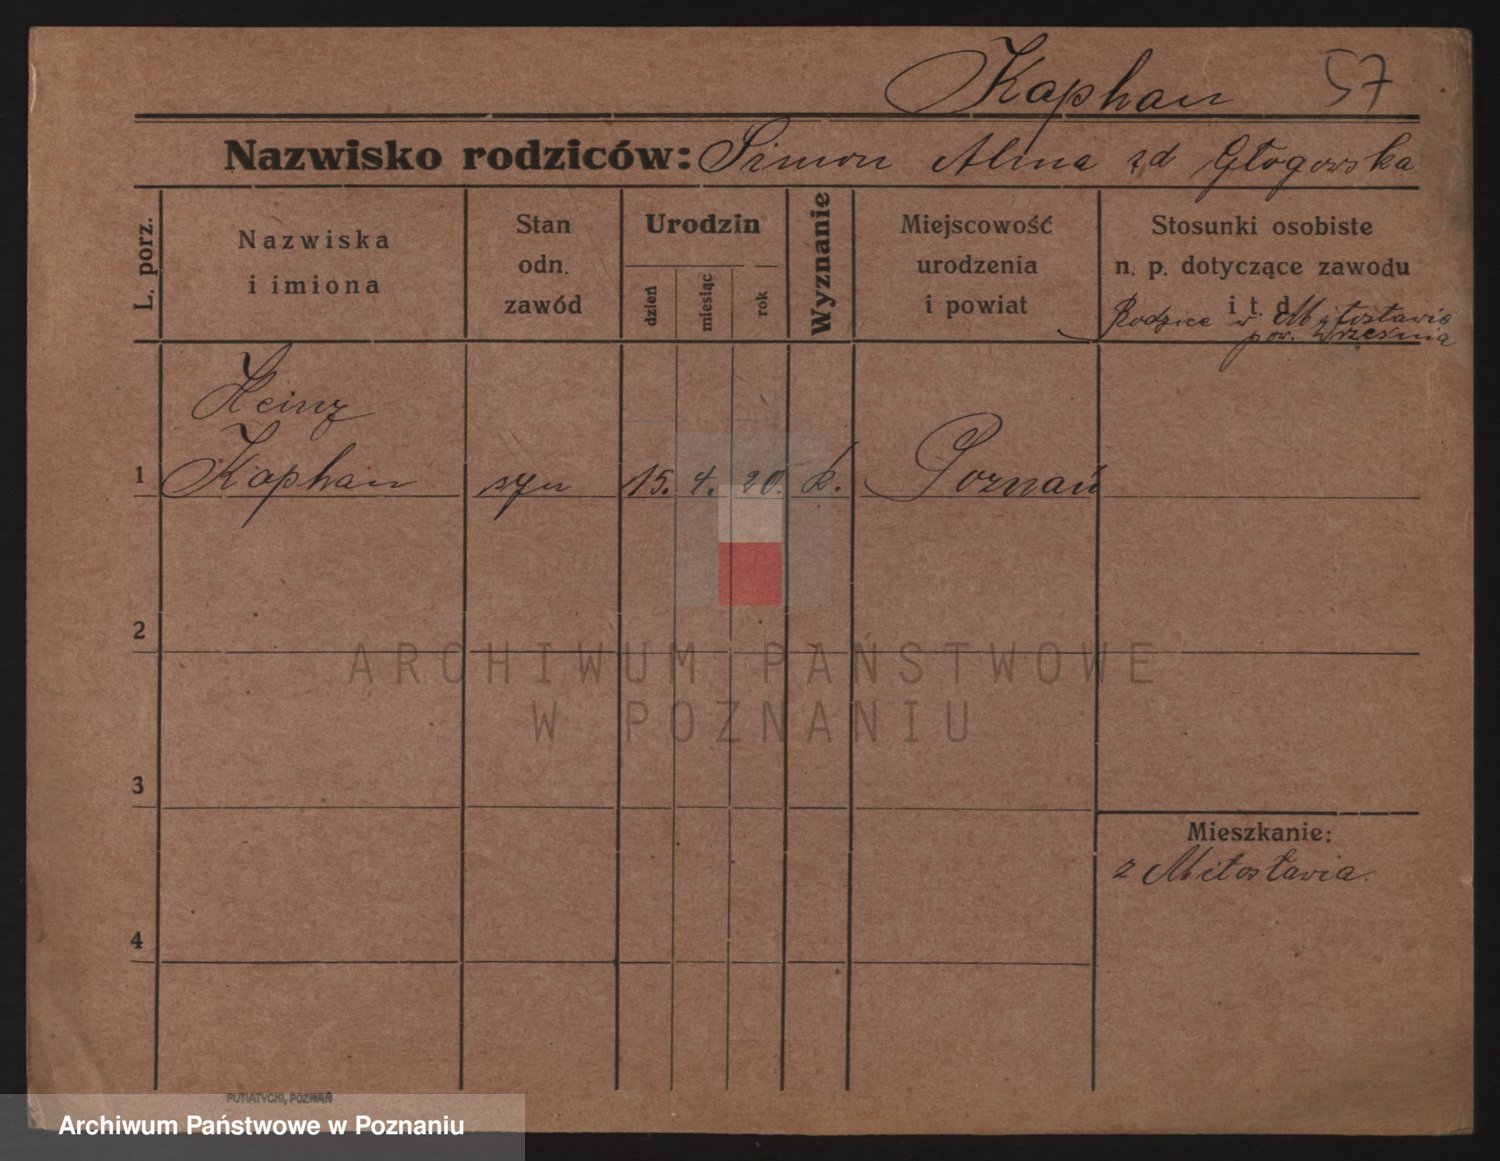 Kaphan 57
Nazwisko rodziców: Simon Alma zd Głogowska
L. porz.
Nazwiska
i imiona
Stan
odn.
zawód
Urodzin
dzień
miesiąc
rok
Wyznanie
Miejscowość
urodzenia
i powiat
Stosunki osobiste
n. p. dotyczące zawodu
i t. d.
Rodzice w Miłosławie
pow. Września
Heinz
1 Kaphan syn 15. 4. 20. Poznań
2
ARCHIWUM PAŃSTWOWE
W POZNANIU
3
Mieszkanie:
z Miłosławia.
4
PUTIATYCKI, POZNAŃ
Archiwum Państwowe w Poznaniu